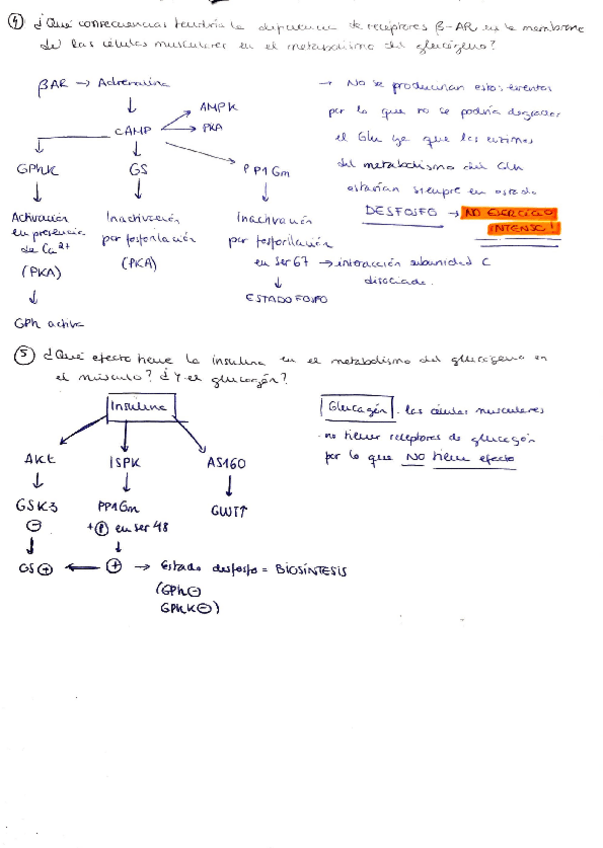 ④ ¿Qué consecuencias tendría la deficiencia de receptores β-AR en la membrana
de las células musculares en el metabolismo del glucógeno?
βAR → Adrenalina
↓
cAMP → AMPK
→ PKA
GPhK
GS
PP1Gm
Activación
en presencia
de Ca²⁺
(PKA)
↓
GPh activa
Inactivación
por fosforilación
(PKA)
Inactivación
por fosforilación
en Ser 67 → interacción subunidad C
disociada.
↓
ESTADO FOSFO
→ No se producirían estos eventos
por lo que no se podría degradar
el Glu ya que las enzimas
del metabolismo del Glu
estarían siempre en estado
DESFOSFO → NO EJERCICIO
INTENSO!
⑤ ¿Qué efecto tiene la insulina en el metabolismo del glucógeno en
el músculo? ¿Y el glucagón?
Insulina
Akt
ISPK
AS160
↓
GSK3
⊖
↓
GS ⊕
PP1Gm
+Ⓟ en ser 48
↓
⊕ → Estado desfosfo = BIOSÍNTESIS
(GPh ⊖
GPhK ⊖)
GLUT↑
Glucagón. las células musculares
no tienen receptores de glucagón
por lo que NO tiene efecto